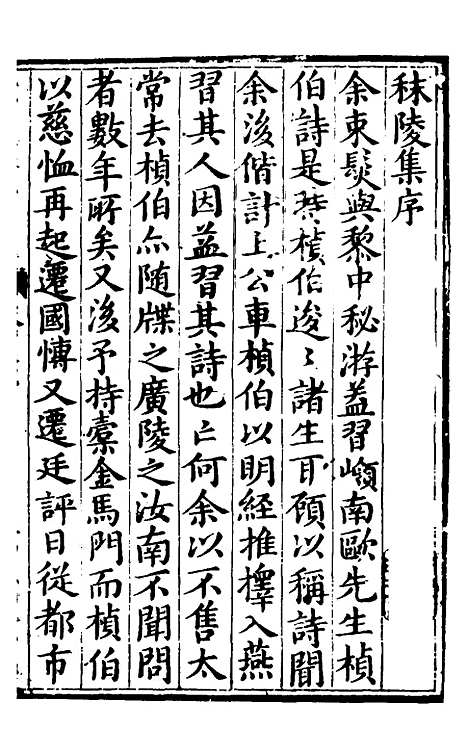 秣陵集序
余束髮與黎中秘游益習嶺南歐先生楨
伯詩是時楨伯逡〻諸生耳顧以稱詩聞
余後偕計上公車楨伯以明經推擇入燕
習其人因益習其詩也亡何余以不售太
常去楨伯亦随牒之廣陵之汝南不聞問
者數年所矣又後予持橐金馬門而楨伯
以慈恤再起遷國愽又遷廷評日從都市